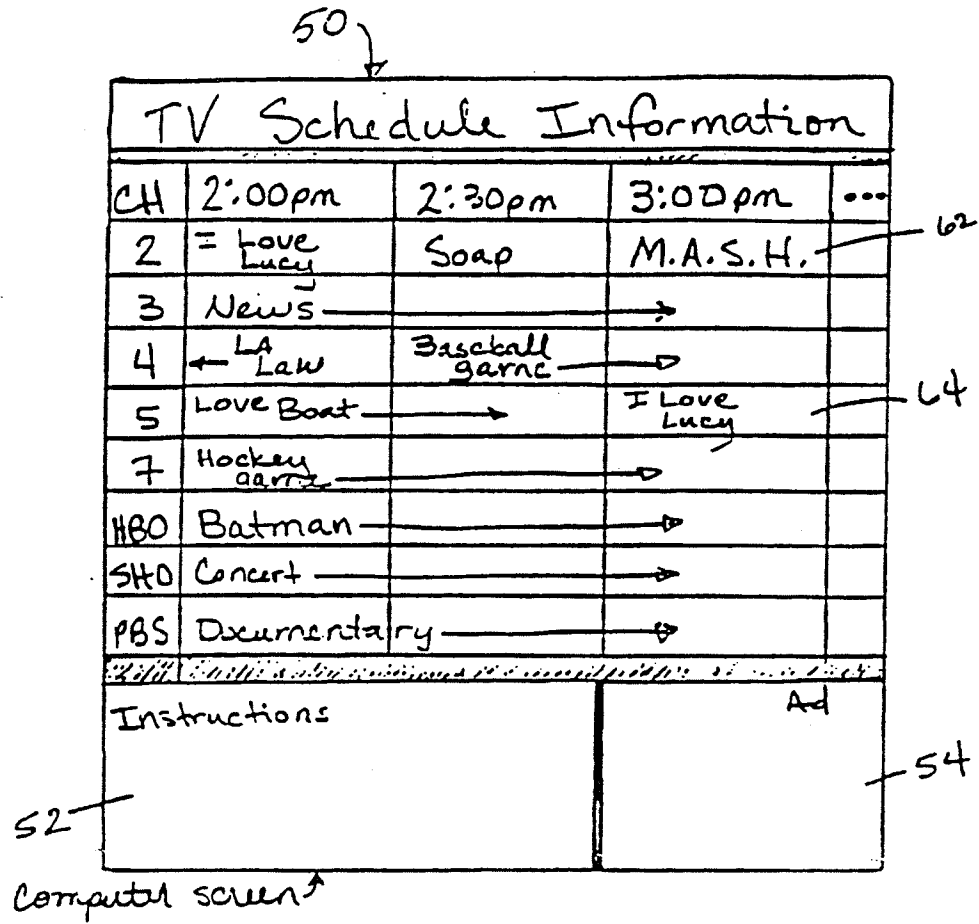 50
TV Schedule Information
CH 2:00pm 2:30pm 3:00pm ...
2 I Love Lucy Soap M.A.S.H. 62
3 News
4 LA Law Baseball game
5 Love Boat I Love Lucy 64
7 Hockey game
HBO Batman
SHO Concert
PBS Documentary
Instructions Ad
52 54
Computer screen